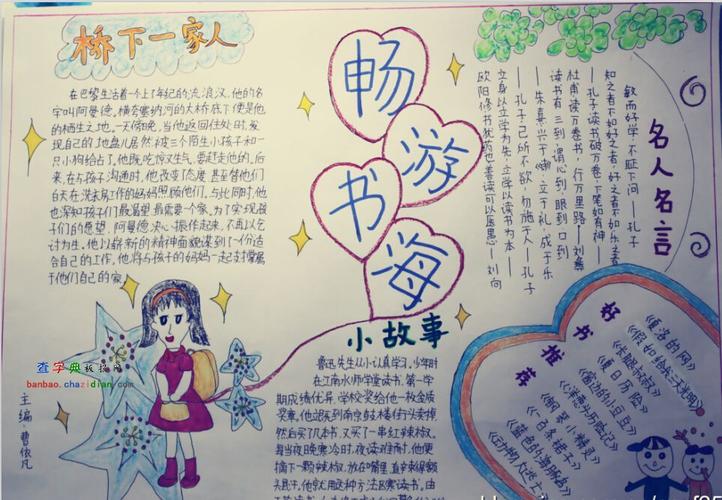 桥下一家人
在巴黎生活着一个上了年纪的流浪汉，他的名
字叫阿曼德。横夸塞纳河的大桥底下便是他
的栖生之地。一天傍晚，当他返回住处时，发
现自己的地盘儿居然被三个陌生小孩子和一
只小狗给占了，他既吃惊又生气，要赶走他们。后
来，在与孩子沟通时，他改变了态度，甚至替他们
白天在洗衣房工作的妈妈照顾他们。与此同时，他
也深知孩子们最渴望最需要一个家。为了实现孩
子们的愿望，阿曼德决心振作起来，不再以乞
讨为生，他以崭新的精神面貌谋到了一份适
合自己的工作，他将与孩子的妈妈一起支撑属
于他们自己的家。
畅游书海
名人名言
敏而好学，不耻下问——孔子
知之者不如好之者，好之者不如乐之者
——孔子读书破万卷，下笔如有神——
杜甫读万卷书，行万里路——刘彝
读书有三到，谓心到，眼到，口到
——朱熹兴于诗，立于礼，成于乐
——孔子己所不欲，勿施于人——孔子
立身以立学为先，立学以读书为本——
欧阳修书犹药也，善读可以医愚——刘向
小故事
鲁迅先生从小认真学习。少年时
在江南水师学堂读书，第一学
期成绩优异，学校奖给他一枚金质
奖章。他立即拿到南京鼓楼街头卖掉，
然后买了几本书，又买了一串红辣椒。
每当夜晚寒冷时，夜读难耐，他便
摘下一颗辣椒，放在嘴里，直辣得额
头冒汗。他就用这种方法驱寒读书。由
好书推荐
《夏洛的网》
《假如给我三天光明》
《长腿叔叔》
《夏日历险》
《窗边的小豆豆》
《钢琴小精灵》
《洋葱头历险记》
《一百条裙子》
《蓝色的海豚岛》
主编：曹依凡
查字典 板报网
banbao.chazidian.com